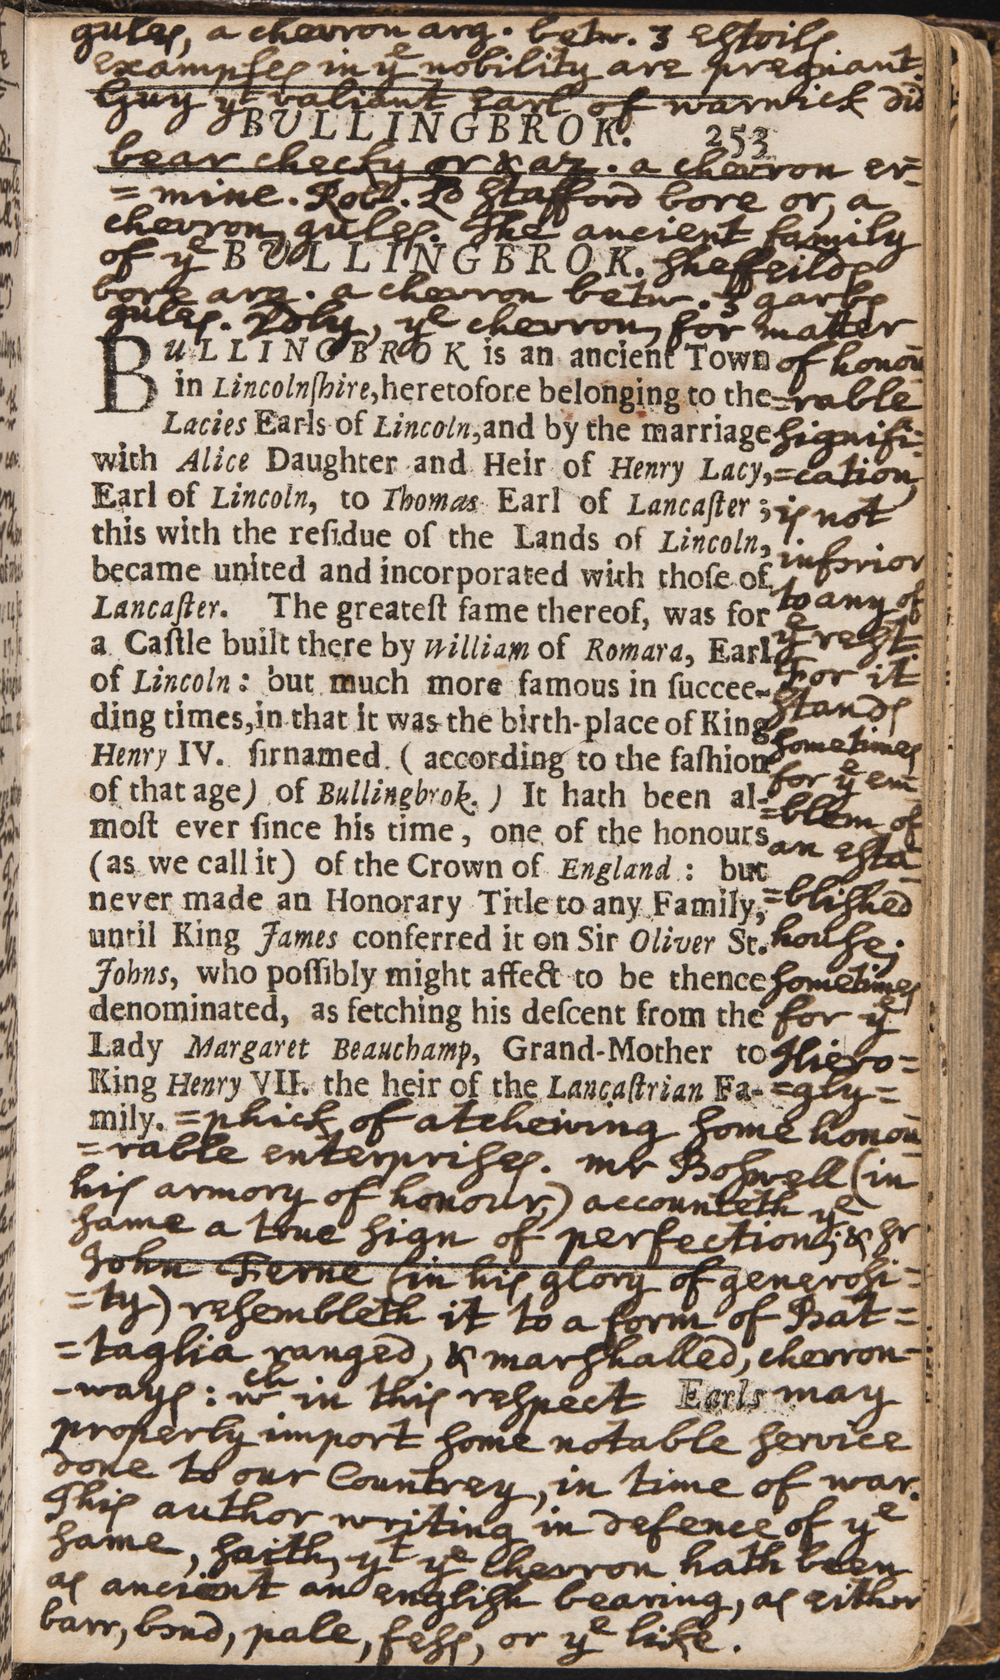 gules, a chevron arg. betw. 3 estoils
examples in yᵉ nobility are pregnant.
Guy yᵗ valiant earl of warwick did
BULLINGBROK. 253
bear checky or & az. a chevron er=
=mine. Rob. Lᵈ Stafford bore or, a
chevron gules. The ancient family
of yᵉ BULLINGBROK. sheffeilds
bore arg. a chevron betw. 3 garbs
gules. yᵉ chevron, for matter
BULLINGBROK is an ancient Town
in Lincolnſhire, heretofore belonging to the
Lacies Earls of Lincoln, and by the marriage
with Alice Daughter and Heir of Henry Lacy,
Earl of Lincoln, to Thomas Earl of Lancaſter;
this with the reſidue of the Lands of Lincoln,
became united and incorporated with thoſe of
Lancaſter. The greateſt fame thereof, was for
a Caſtle built there by William of Romara, Earl
of Lincoln: but much more famous in ſuccee-
ding times, in that it was the birth-place of King
Henry IV. ſirnamed (according to the faſhion
of that age) of Bullingbrok.) It hath been al-
moſt ever ſince his time, one of the honours
(as we call it) of the Crown of England: but
never made an Honorary Title to any Family,
until King James conferred it on Sir Oliver St.
Johns, who poſſibly might affect to be thence
denominated, as fetching his deſcent from the
Lady Margaret Beauchamp, Grand-Mother to
King Henry VII. the heir of the Lancaſtrian Fa-
mily.
of honou
=rable
signifi-
=cation,
is not
inferior
to any of
yᵉ rest.
For it
stands
sometimes
for yᵉ em-
=blem of
an esta
=blished
house;
sometimes
for yᵉ
Hiero=
=gly=
=phick of atcheiving some honou
=rable enterprises. mr Boswell (in
his armory of honour,) accounteth yᵉ
same a true sign of perfection; & sr
John Ferne (in his glory of generosi=
=ty) resembleth it to a form of Bat=
=taglia ranged, & marshalled, chevron-
-ways: wᶜʰ in this respect Earls may
properly import some notable service
done to our Countrey, in time of war.
This author writing in defence of yᵉ
same, saith, yᵗ yᵉ chevron hath been
as ancient an english bearing, as either
barr, bend, pale, fess, or yᵉ like.